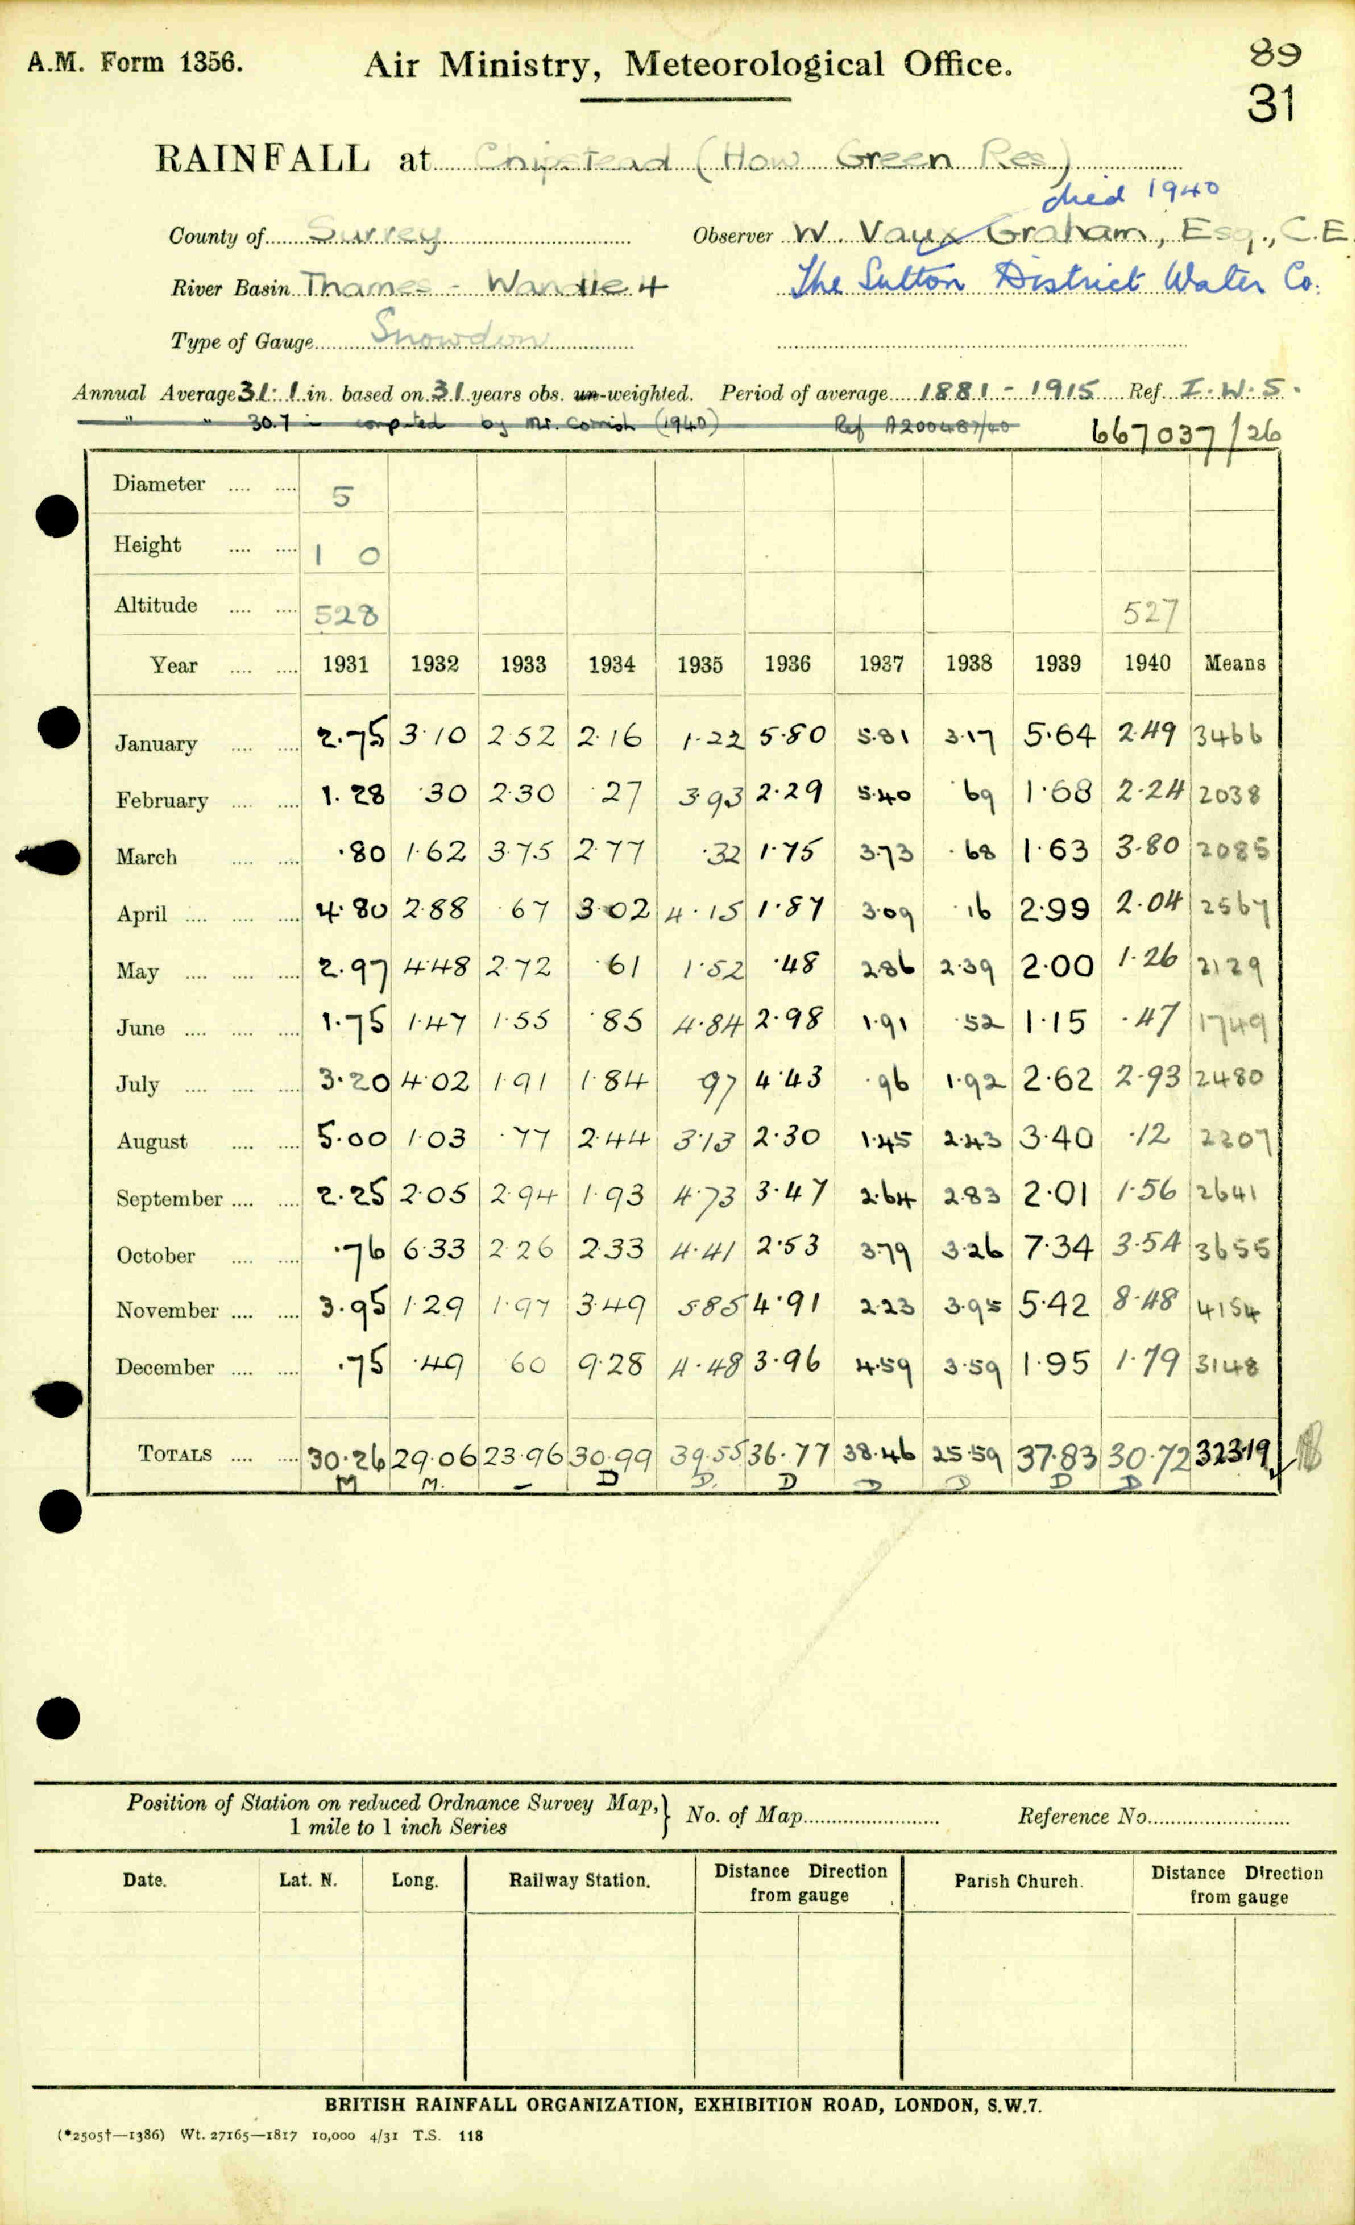 A.M. Form 1356.
Air Ministry, Meteorological Office.
89
31
RAINFALL at Chipstead (How Green Res)
died 1940
County of Surrey Observer W. Vaux Graham, Esq., C.E.
River Basin Thames - Wandle 4 The Sutton District Water Co.
Type of Gauge Snowdon
Annual Average 31.1 in. based on 31 years obs. un-weighted. Period of average 1881 - 1915 Ref. I.W.S.
" " 30.7 in computed by Mr. Cornish (1940) Ref A200487/40
667037/26
Diameter 5
Height 1 0
Altitude 528 527
Year 1931 1932 1933 1934 1935 1936 1937 1938 1939 1940 Means
January 2.75 3.10 2.52 2.16 1.22 5.80 5.81 3.17 5.64 2.49 3466
February 1.28 .30 2.30 .27 3.93 2.29 5.40 .69 1.68 2.24 2038
March .80 1.62 3.75 2.77 .32 1.75 3.73 .68 1.63 3.80 2085
April 4.80 2.88 .67 3.02 4.15 1.87 3.09 .16 2.99 2.04 2567
May 2.97 4.48 2.72 .61 1.52 .48 2.86 2.39 2.00 1.26 2129
June 1.75 1.47 1.55 .85 4.84 2.98 1.91 .52 1.15 .47 1749
July 3.20 4.02 1.91 1.84 .97 4.43 .96 1.92 2.62 2.93 2480
August 5.00 1.03 .77 2.44 3.13 2.30 1.45 2.43 3.40 .12 2207
September 2.25 2.05 2.94 1.93 4.73 3.47 2.64 2.83 2.01 1.56 2641
October .76 6.33 2.26 2.33 4.41 2.53 3.79 3.26 7.34 3.54 3655
November 3.95 1.29 1.97 3.49 5.85 4.91 2.23 3.95 5.42 8.48 4154
December .75 .49 .60 9.28 4.48 3.96 4.59 3.59 1.95 1.79 3148
TOTALS 30.26 29.06 23.96 30.99 39.55 36.77 38.46 25.59 37.83 30.72 32319
M M. – D D. D D D D D
Position of Station on reduced Ordnance Survey Map, } No. of Map Reference No.
1 mile to 1 inch Series
Date. Lat. N. Long. Railway Station. Distance Direction from gauge Parish Church. Distance Direction from gauge
BRITISH RAINFALL ORGANIZATION, EXHIBITION ROAD, LONDON, S.W.7.
(*2505†—1386) Wt. 27165—1817 10,000 4/31 T.S. 118